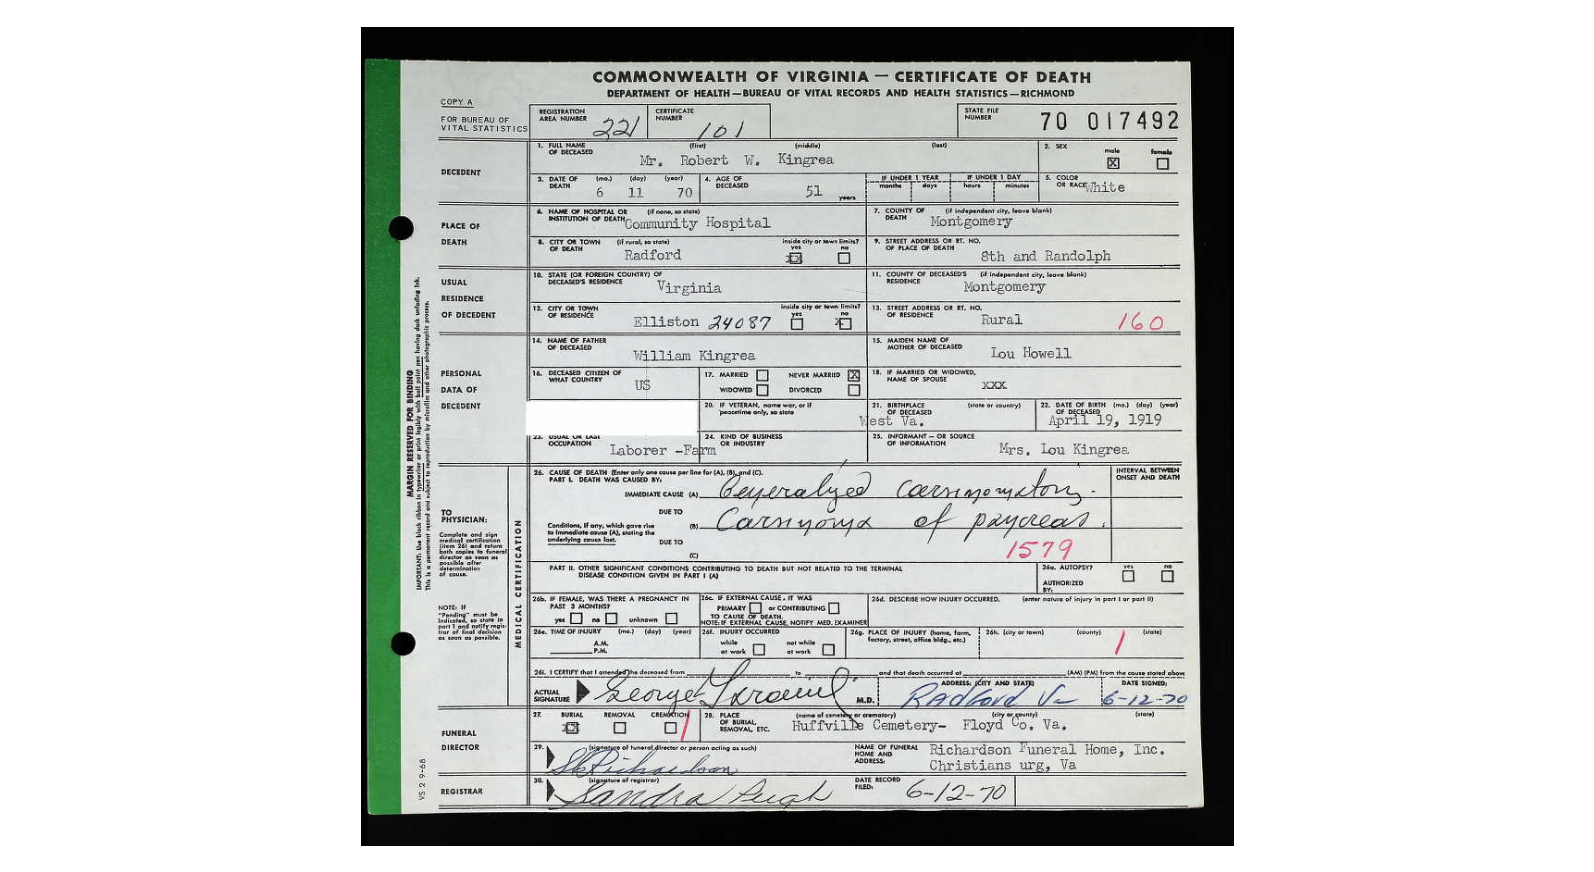 COMMONWEALTH OF VIRGINIA — CERTIFICATE OF DEATH
DEPARTMENT OF HEALTH—BUREAU OF VITAL RECORDS AND HEALTH STATISTICS—RICHMOND
COPY A
FOR BUREAU OF VITAL STATISTICS
REGISTRATION AREA NUMBER 221
CERTIFICATE NUMBER 101
STATE FILE NUMBER 70 017492
DECEDENT
1. FULL NAME OF DECEASED (first) (middle) (last)
Mr. Robert W. Kingrea
2. SEX male X female
3. DATE OF DEATH (mo.) (day) (year) 6 11 70
4. AGE OF DECEASED 51 years
IF UNDER 1 YEAR months days
IF UNDER 1 DAY hours minutes
5. COLOR OR RACE White
PLACE OF DEATH
6. NAME OF HOSPITAL OR INSTITUTION OF DEATH (if none, so state) Community Hospital
7. COUNTY OF DEATH (if independent city, leave blank) Montgomery
8. CITY OR TOWN OF DEATH (if rural, so state) Radford
inside city or town limits? yes X no
9. STREET ADDRESS OR RT. NO. OF PLACE OF DEATH 8th and Randolph
USUAL RESIDENCE OF DECEDENT
10. STATE (OR FOREIGN COUNTRY) OF DECEASED'S RESIDENCE Virginia
11. COUNTY OF DECEASED'S RESIDENCE (if independent city, leave blank) Montgomery
12. CITY OR TOWN OF RESIDENCE Elliston 24087
inside city or town limits? yes no X
13. STREET ADDRESS OR RT. NO. OF RESIDENCE Rural 160
PERSONAL DATA OF DECEDENT
14. NAME OF FATHER OF DECEASED William Kingrea
15. MAIDEN NAME OF MOTHER OF DECEASED Lou Howell
16. DECEASED CITIZEN OF WHAT COUNTRY US
17. MARRIED NEVER MARRIED X WIDOWED DIVORCED
18. IF MARRIED OR WIDOWED, NAME OF SPOUSE XXX
20. IF VETERAN, name war, or if peacetime only, so state
21. BIRTHPLACE OF DECEASED (state or country) West Va.
22. DATE OF BIRTH (mo.) (day) (year) OF DECEASED April 19, 1919
23. USUAL OR LAST OCCUPATION Laborer -Farm
24. KIND OF BUSINESS OR INDUSTRY
25. INFORMANT — OR SOURCE OF INFORMATION Mrs. Lou Kingrea
MARGIN RESERVED FOR BINDING
TO PHYSICIAN:
Complete and sign medical certification (item 26) and return both copies to funeral director as soon as possible after determination of cause.
NOTE: If "Pending" must be indicated, so state in part I and notify registrar of final decision as soon as possible.
MEDICAL CERTIFICATION
26. CAUSE OF DEATH (Enter only one cause per line for (A), (B), and (C).
PART I. DEATH WAS CAUSED BY:
INTERVAL BETWEEN ONSET AND DEATH
IMMEDIATE CAUSE (A) Generalyzed
DUE TO
Conditions, if any, which gave rise to immediate cause (A), stating the underlying cause last.
(B) Carsinoma of pancreas.
DUE TO
(C) 1579
PART II. OTHER SIGNIFICANT CONDITIONS CONTRIBUTING TO DEATH BUT NOT RELATED TO THE TERMINAL DISEASE CONDITION GIVEN IN PART I (A)
26a. AUTOPSY? yes no
AUTHORIZED BY:
26b. IF FEMALE, WAS THERE A PREGNANCY IN PAST 3 MONTHS?
yes no unknown
26c. IF EXTERNAL CAUSE, IT WAS PRIMARY or CONTRIBUTING TO CAUSE OF DEATH.
NOTE: IF EXTERNAL CAUSE, NOTIFY MED. EXAMINER
26d. DESCRIBE HOW INJURY OCCURRED. (enter nature of injury in part I or part II)
26e. TIME OF INJURY (mo.) (day) (year) A.M. P.M.
26f. INJURY OCCURRED while at work not while at work
26g. PLACE OF INJURY (home, farm, factory, street, office bldg., etc.)
26h. (city or town) (county) (state) 1
26i. I CERTIFY that I attended the deceased from to and that death occurred at (AM) (PM) from the cause stated above
ACTUAL SIGNATURE George M.D.
ADDRESS: (CITY AND STATE) Radford Va
DATE SIGNED: 6-12-70
FUNERAL DIRECTOR
27. BURIAL X REMOVAL CREMATION 1
28. PLACE OF BURIAL, REMOVAL, ETC. (name of cemetery or crematory) (city or county) (state)
Huffville Cemetery- Floyd Co. Va.
29. (signature of funeral director or person acting as such) Richardson
NAME OF FUNERAL HOME AND ADDRESS: Richardson Funeral Home, Inc.
Christians urg, Va
REGISTRAR
30. (signature of registrar) Sandra Pugh
DATE RECORD FILED: 6-12-70
VS 2 9-68